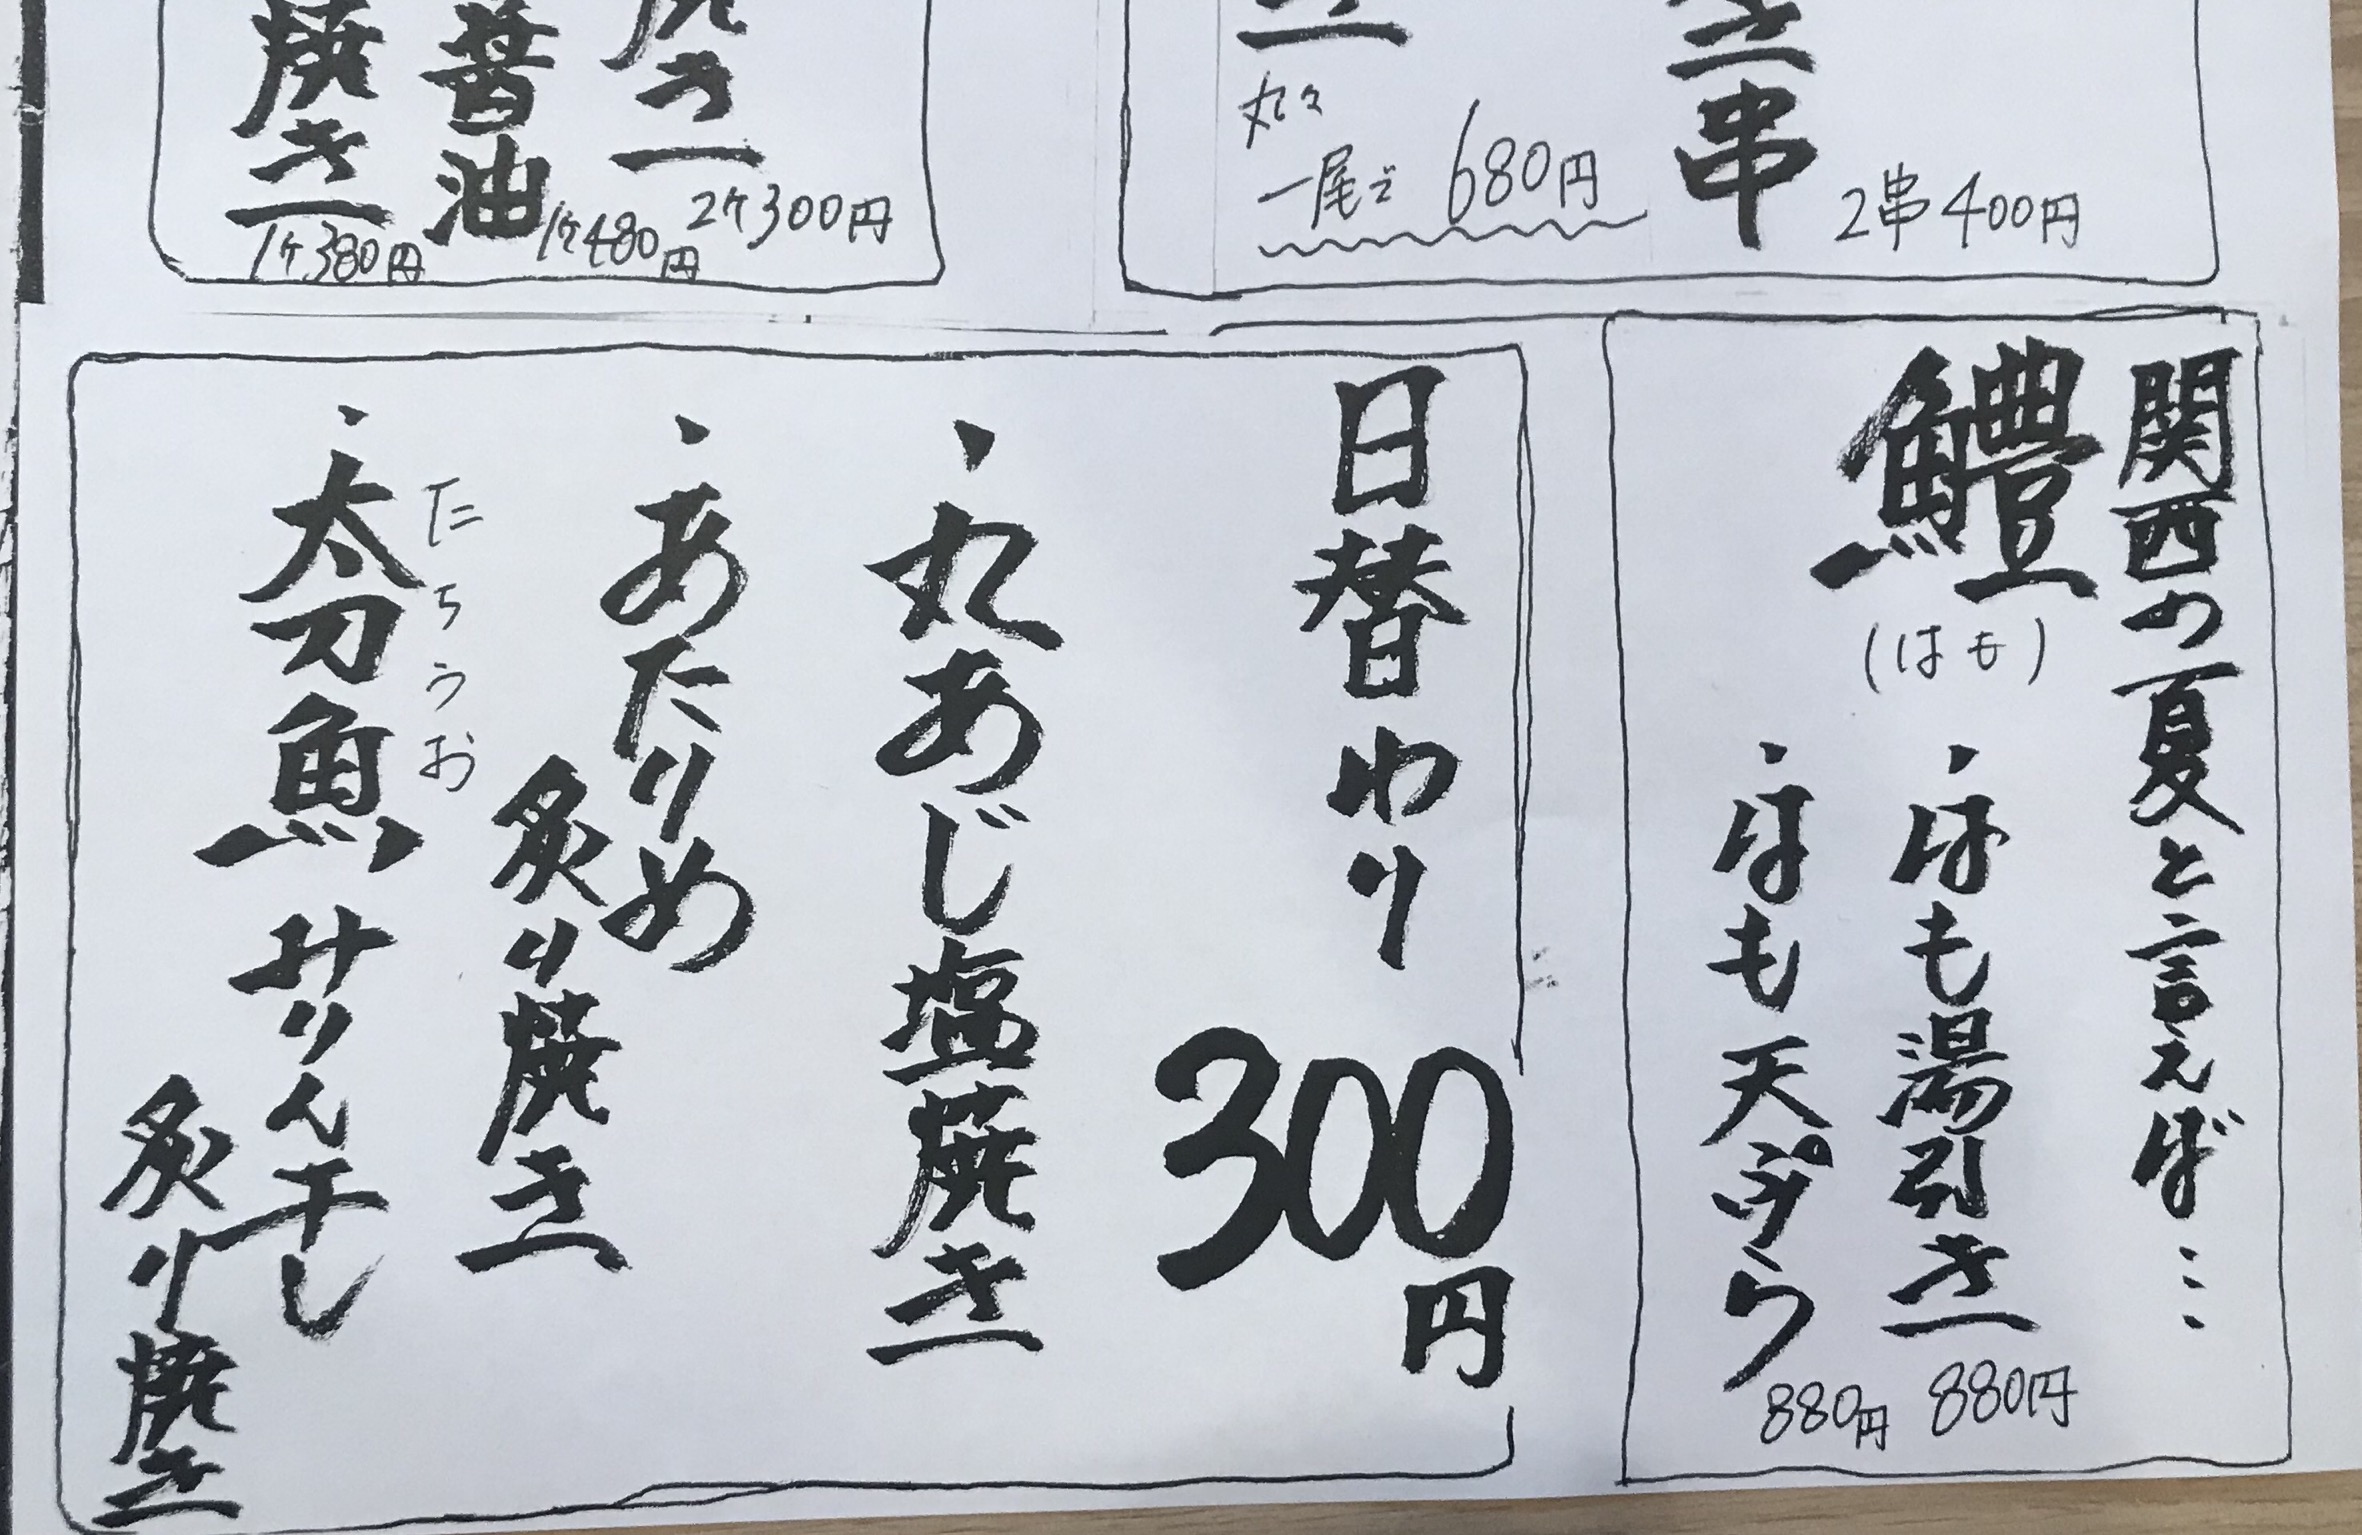 串
2串400円
丸々
一尾で 680円
焼き
2ケ300円
醤油
1ケ480円
焼き
1ケ380円
関西の夏と言えば…
鱧
(はも)
・はも湯引き
880円
・はも天ぷら
880円
日替わり
300円
・丸あじ塩焼き
・あたりめ
炙り焼き
・太刀魚みりん干し
たちうお
炙り焼き